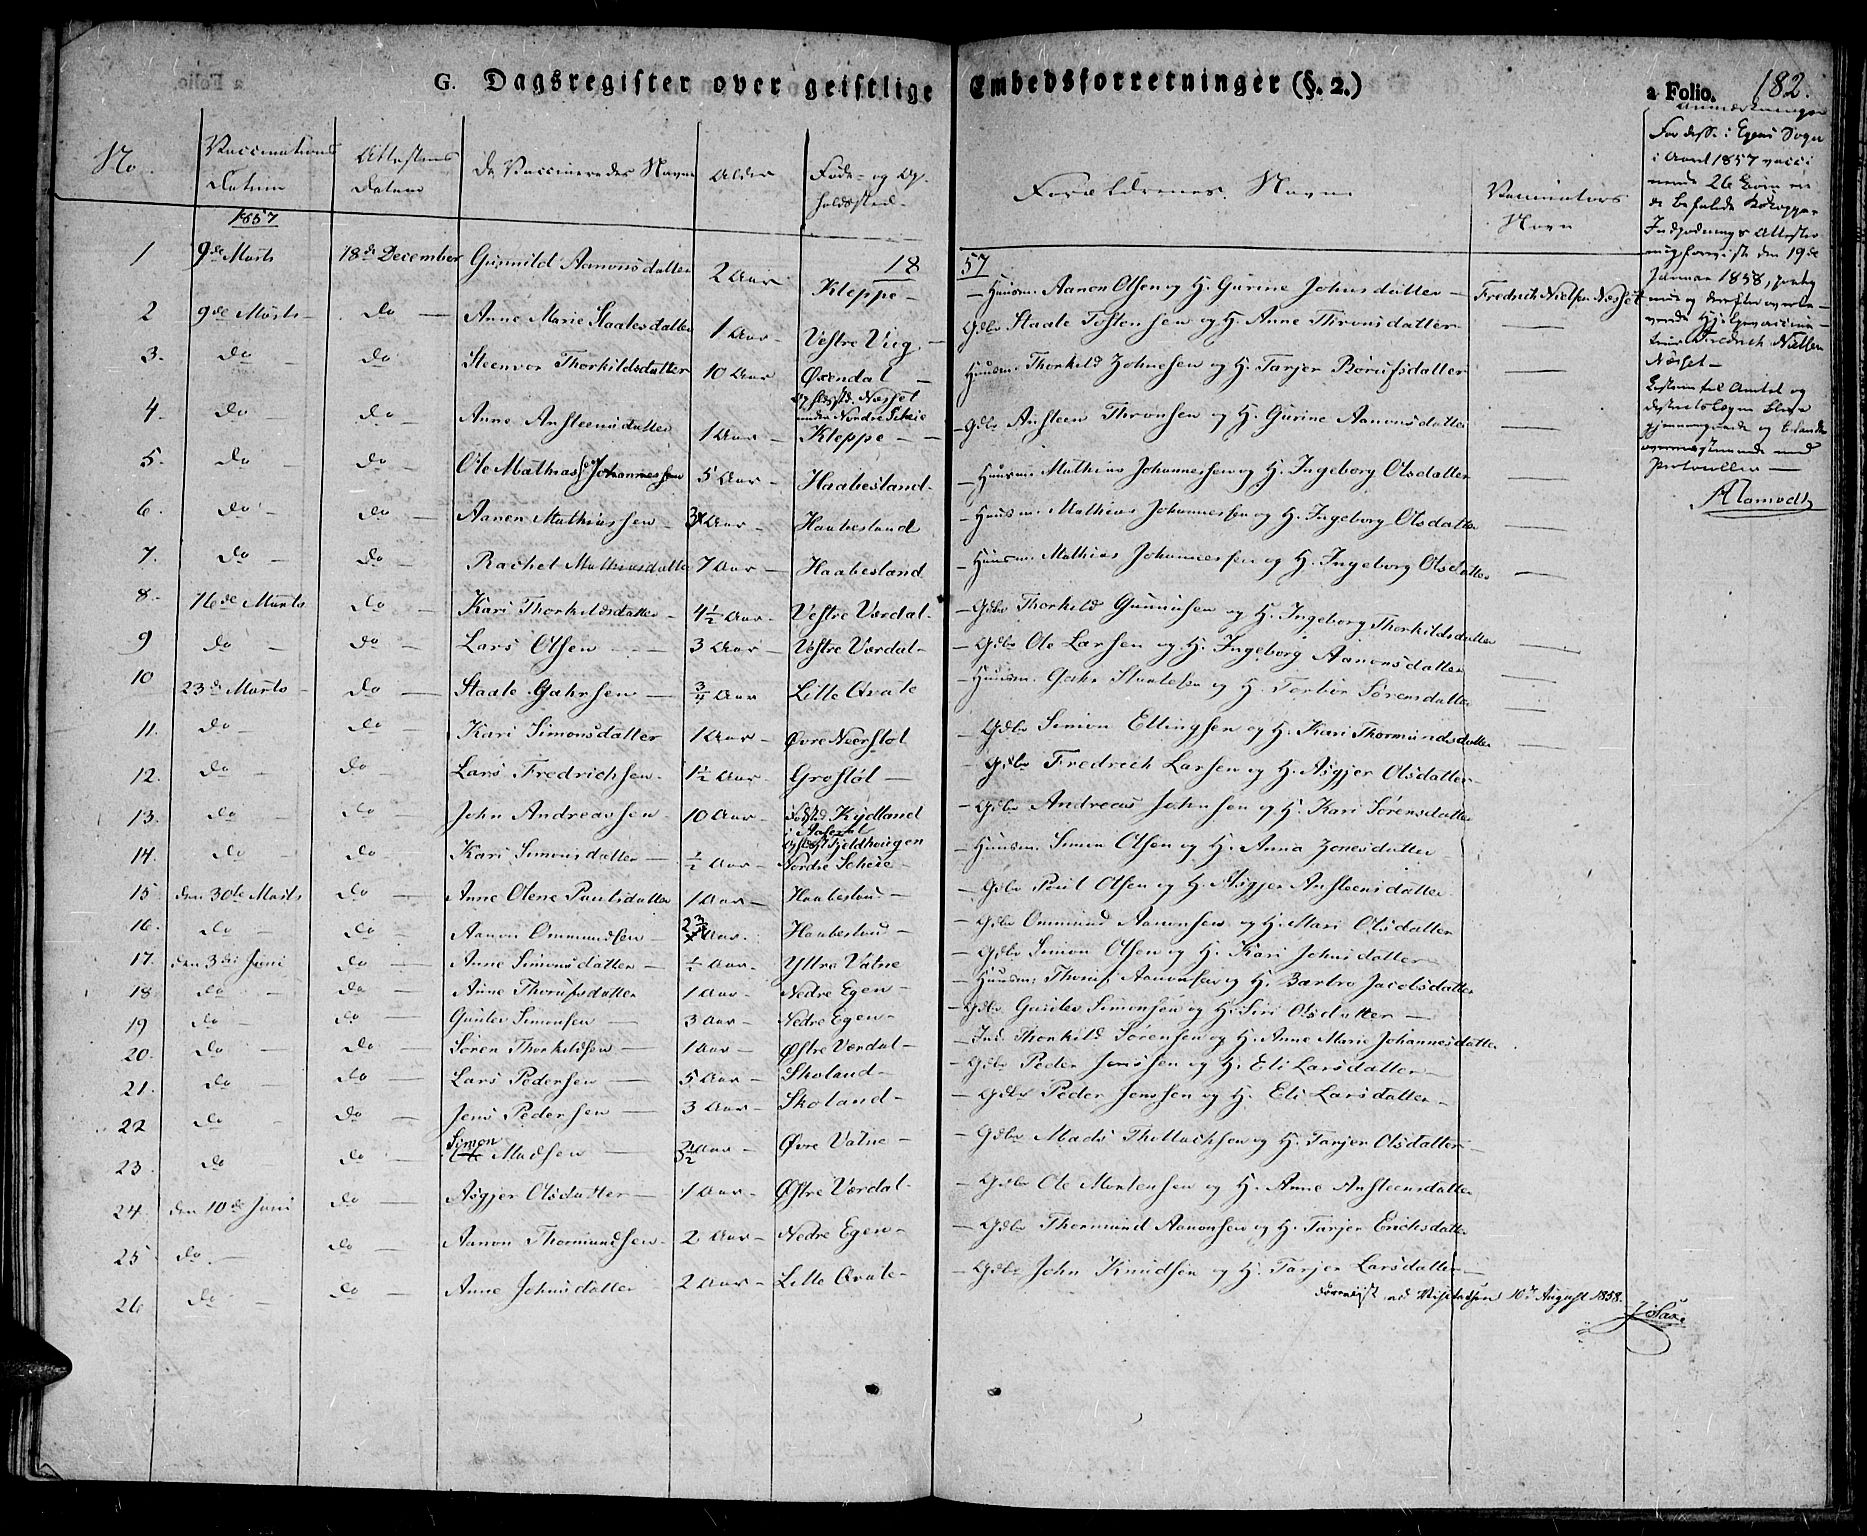 G. Dagsregister over geistlige Embedsforretninger (§. 2.) a Folio. 182.
No. Vaccinations Datum Attestens Datum De Vaccineredes Navne Alder Føde- og Opholdssted. Forældrenes Navne Vaccinators Navn
1857
18 57
1 9de Marts 18de December Gunnild Aanonsdatter 2 Aar Kleppe – Huusm. Aanen Olsen og H. Gurine Johnsdatter – Fredrich Nielsen Næsset
2 9de Marts – do – Anne Marie Staalesdatter 1 Aar – Vestre Viig – Gdbr Staale Tostensen og H. Anne Thronsdatter –
3. do – do Steenvor Thorkildsdatter 10 Aar Øxendal – Huusm. Thorkild Johnesen og H. Tarjer Borufsdatter –
Opholdsstd. Næsset under Nordre Scheie
4. do – do Anne Ansteensdatter 1 Aar – Kleppe – – Gdbr Ansteen Thronsen og H. Gurine Aanonsdatter –
5. do – do – Ole Mathias Johannessen 5 Aar – Haabesland – Huusm. Mathias Johannessen og H. Ingeborg Olsdatter –
6. do – do – Aanen Mathiassen – 3 Aar – Haabesland – Huusm. Mathias Johannessen og H. Ingeborg Olsdatter –
7. do – do – Rachel Mathiasdatter 7 Aar – Haabesland – Huusm. Mathias Johannessen og H. Ingeborg Olsdatter –
8. 16de Marts do – Kari Thorkildsdatter – 4½ Aar – Vestre Værdal – Gdbr Thorkild Gunnufsen og H. Ingeborg Thorkildsdatter –
9 do – do – Lars Olsen – 3 Aar – Vestre Værdal – Gdbr Ole Larsen og H. Ingeborg Aanonsdatter –
10 23de Marts – do – Staale Gahrsen – ¾ Aar Lille Qvale – Huusm. Gahr Staalesen og H. Torbør Sørensdatter –
11. do – do – Kari Simonsdatter 1 Aar – Øvre Neerstøl – Gdbr Simon Ellingsen og H. Kari Thormundsdatter –
12. do – do – Lars Fredrichsen – 1½ Aar – Grostøl – – Gdbr Fredrich Larsen og H. Asgjer Olsdatter
13. do – do – John Andreassen 10 Aar – Fødstd Kydland i Aaseral – Gdbr Andreas Johnsen og H. Kari Sørensdatter
Opholdst Fjeldhougen
14. do – do – Kari Simonsdatter – ½ Aar – Nordre Scheie – – Huusm. Simon Olsen og H. Anna Jonesdatter –
15 den 30te Marts do – Anne Olene Paulsdatter 1 Aar – Haabesland – – Gdbr Paul Olsen og H. Asgjer Ansteensdatter
16. do – do – Aanon Ommundsen – 2¾ Aar. Haabesland – – Gdbr Ommund Aanonsen og H. Mari Olsdatter
17. den 3die Juni do – Anne Simonsdatter – ½ Aar – Yttre Vatne – Gdbr Simon Olsen og H. Kari Johnsdatter
18 do – do – Anne Thorufsdatter 1 Aar – Nedre Egen – – Huusm. Thoruf Aanonsen og H. Barbro Jacobsdatter
19 do – do – Gunlev Simonsen – 3 Aar – Nedre Egen – – Gdbr Gunlev Simonsen og H. Siri Olsdatter –
20. do – do – Søren Thorkildsen – 1 Aar – Østre Værdal – – Ind. Thorkild Sørensen og H. Anne Marie Johannesdatter
21. do do – Lars Pedersen – 5 Aar – Skoland – – Gdbr Peder Jenssen og H. Eli Larsdatter –
22 do – do – Jens Pedersen – 3 Aar – Skoland – – Gdbr Peder Jenssen og H. Eli Larsdatter –
23. do do – Simon Madsen – 3½ Aar – Øvre Vatne – – Gdbr Mads Thollachsen og H. Tarjer Olsdatter –
24. den 10de Juni do – Asgjer Olsdatter – 1 Aar – Østre Værdal – – Gdbr Ole Mortensen og H. Anne Ansteensdatter
25 do – do – Aanon Thormundsen – 2 Aar – Nedre Egen – – Gdbr Thormund Aanonsen og H. Tarjer Erichsdatter
26 do – do – Anne Johnsdatter – 2 Aar – Lille Qvale – – Gdbr John Knudsen og H. Tarjer Larsdatter –
Foreviist ved Visitatsen 10de August 1858.
Anmærkninger
For disse i Egens Sogn
i Aaret 1857 vacci
nerede 26 Børn er
de befalede Kokopper
Indpodnings Attester
mig foreviist den 19de
Januar 1858,
Fredrich Nielsen
Næsset –
gjennemgaaede og befundne
overeensstemmende med
Protocollen –